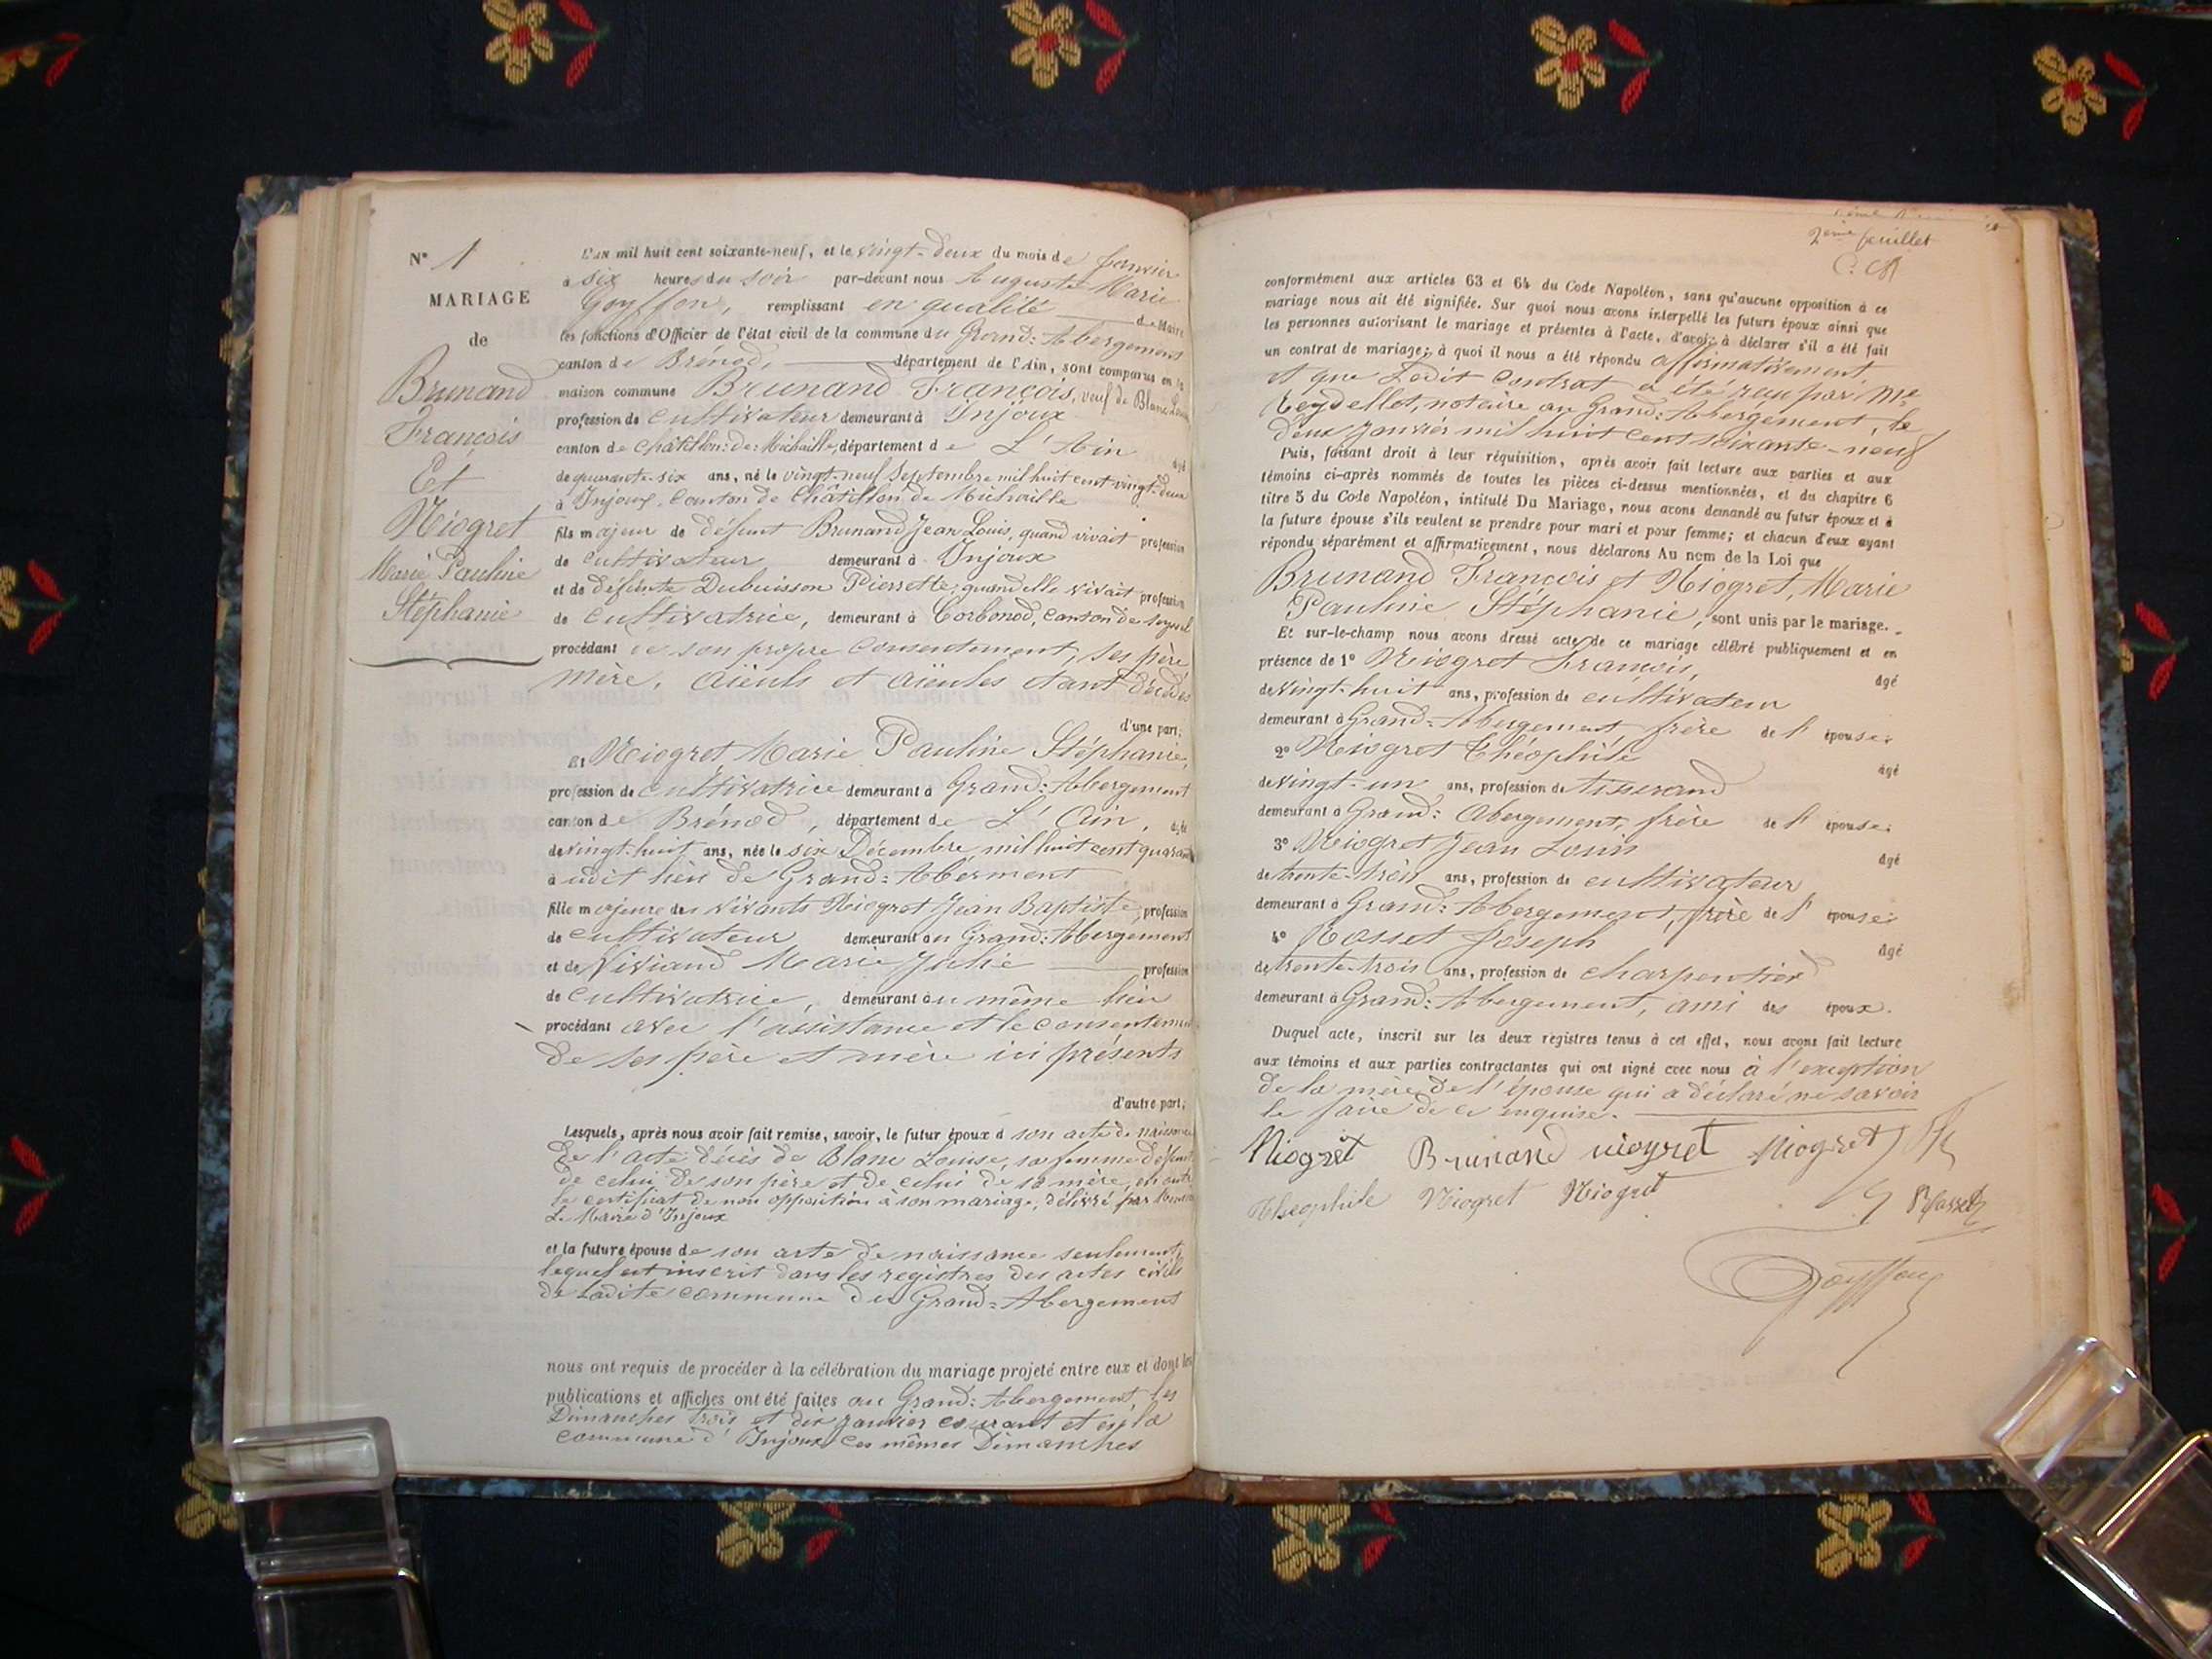 N° 1
MARIAGE
de
Brunand
François
Et
Niogret
Marie Pauline
Stéphanie
L'AN mil huit cent soixante-neuf, et le vingt-deux du mois de janvier
à six heures du soir par-devant nous Auguste Marie
Goyffon, remplissant en qualité de Maire
les fonctions d'Officier de l'état civil de la commune du Grand=Abergement
canton de Brénod, département de l'Ain, sont comparus en la
maison commune Brunand François, veuf de Blanc Louise
profession de cultivateur demeurant à Injoux
canton de Châtillon=de=Michaille, département de L'Ain âgé
de quarante-six ans, né le vingt-neuf Septembre mil huit cent vingt-deux
à Injoux, Canton de Châtillon de Michaille
fils majeur de défunt Brunand Jean Louis, quand vivait profession
de cultivateur demeurant à Injoux
et de défunte Dubuisson Pierrette, quand elle vivait profession
de cultivatrice, demeurant à Corbonod, canton de Seyssel
procédant de son propre consentement, ses père
mère, aïeuls et aïeules étant décédés
d'une part;
Et Niogret Marie Pauline Stéphanie,
profession de cultivatrice demeurant à Grand=Abergement
canton de Brénod, département de L'Ain, âgée
de vingt-huit ans, née le six Décembre mil huit cent quarante
à udit lieu de Grand=Aberment
fille majeure des vivants Niogret Jean Baptiste, profession
de cultivateur demeurant au Grand=Abergement
et de Viviand Marie Julie profession
de cultivatrice, demeurant au même lieu
procédant avec l'assistance et le consentement
de ses père et mère ici présents
d'autre part;
Lesquels, après nous avoir fait remise, savoir, le futur époux d son acte de naissance
de l'acte décès de Blanc Louise, sa femme défunte
de celui de son père et de celui de sa mère, en outre
le certificat de non opposition à son mariage, délivré par
Le Maire d'Injoux
et la future épouse de son acte de naissance seulement,
lequel est inscrit dans les registres des actes civils
de ladite commune du Grand=Abergement
nous ont requis de procéder à la célébration du mariage projeté entre eux et dont les
publications et affiches ont été faites au Grand=Abergement, les
Dimanches trois et dix janvier courant et en la
commune d'Injoux les mêmes Dimanches
2ème feuillet
conformément aux articles 63 et 64 du Code Napoléon, sans qu'aucune opposition à ce
mariage nous ait été signifiée. Sur quoi nous avons interpellé les futurs époux ainsi que
les personnes autorisant le mariage et présentes à l'acte, d'avoir à déclarer s'il a été fait
un contrat de mariage; à quoi il nous a été répondu affirmativement
et que Ledit contrat a été reçu par Me
Reydellet, notaire au Grand=Abergement, le
deux janvier mil huit cent soixante-neuf
Puis, faisant droit à leur réquisition, après avoir fait lecture aux parties et aux
témoins ci-après nommés de toutes les pièces ci-dessus mentionnées, et du chapitre 6
titre 5 du Code Napoléon, intitulé Du Mariage, nous avons demandé au futur époux et à
la future épouse s'ils veulent se prendre pour mari et pour femme; et chacun d'eux ayant
répondu séparément et affirmativement, nous déclarons Au nom de la Loi que
Brunand François et Niogret, Marie
Pauline Stéphanie, sont unis par le mariage.
Et sur-le-champ nous avons dressé acte de ce mariage célébré publiquement et en
présence de 1° Niogret François, âgé
de vingt-huit ans, profession de cultivateur
demeurant à Grand=Abergement frère de l'épouse;
2° Niogret Théophile âgé
de vingt-un ans, profession de tisserand
demeurant à Grand=Abergement, frère de l'épouse;
3° Niogret Jean Louis âgé
de trente-trois ans, profession de cultivateur
demeurant à Grand=Abergement, frère de l'épouse;
4° Rosset Joseph âgé
de trente-trois ans, profession de charpentier
demeurant à Grand=Abergement, ami des époux.
Duquel acte, inscrit sur les deux registres tenus à cet effet, nous avons fait lecture
aux témoins et aux parties contractantes qui ont signé avec nous à l'exception
de la mère de l'épouse qui a déclaré ne savoir
le faire de ce enquise.
Niogret Brunand niogret Niogret
Theophile Niogret Niogret Rosset
Goyffon